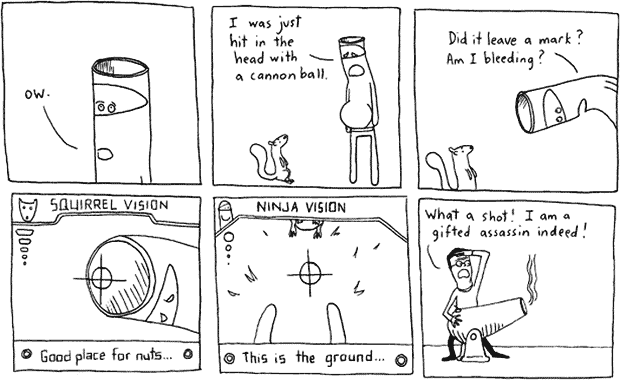 OW.
I was just
hit in the
head with
a cannon ball.
Did it leave a mark?
Am I bleeding?
SQUIRREL VISION
Good place for nuts...
NINJA VISION
This is the ground...
What a shot! I am a
gifted assassin indeed!